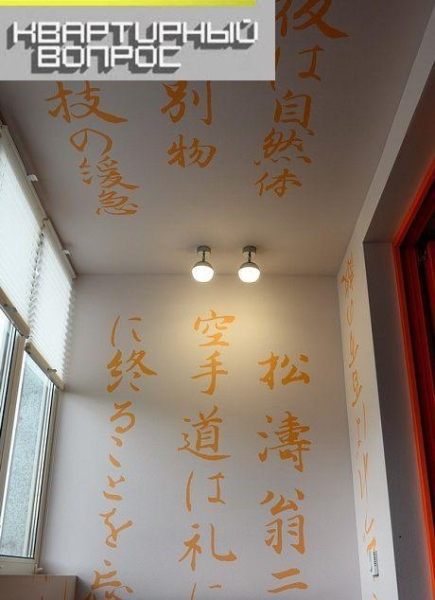 КВАРТИРНЫЙ
ВОПРОС
は自然体
別物
技の緩急
松濤翁二
空手道は礼に
に終ることを忘